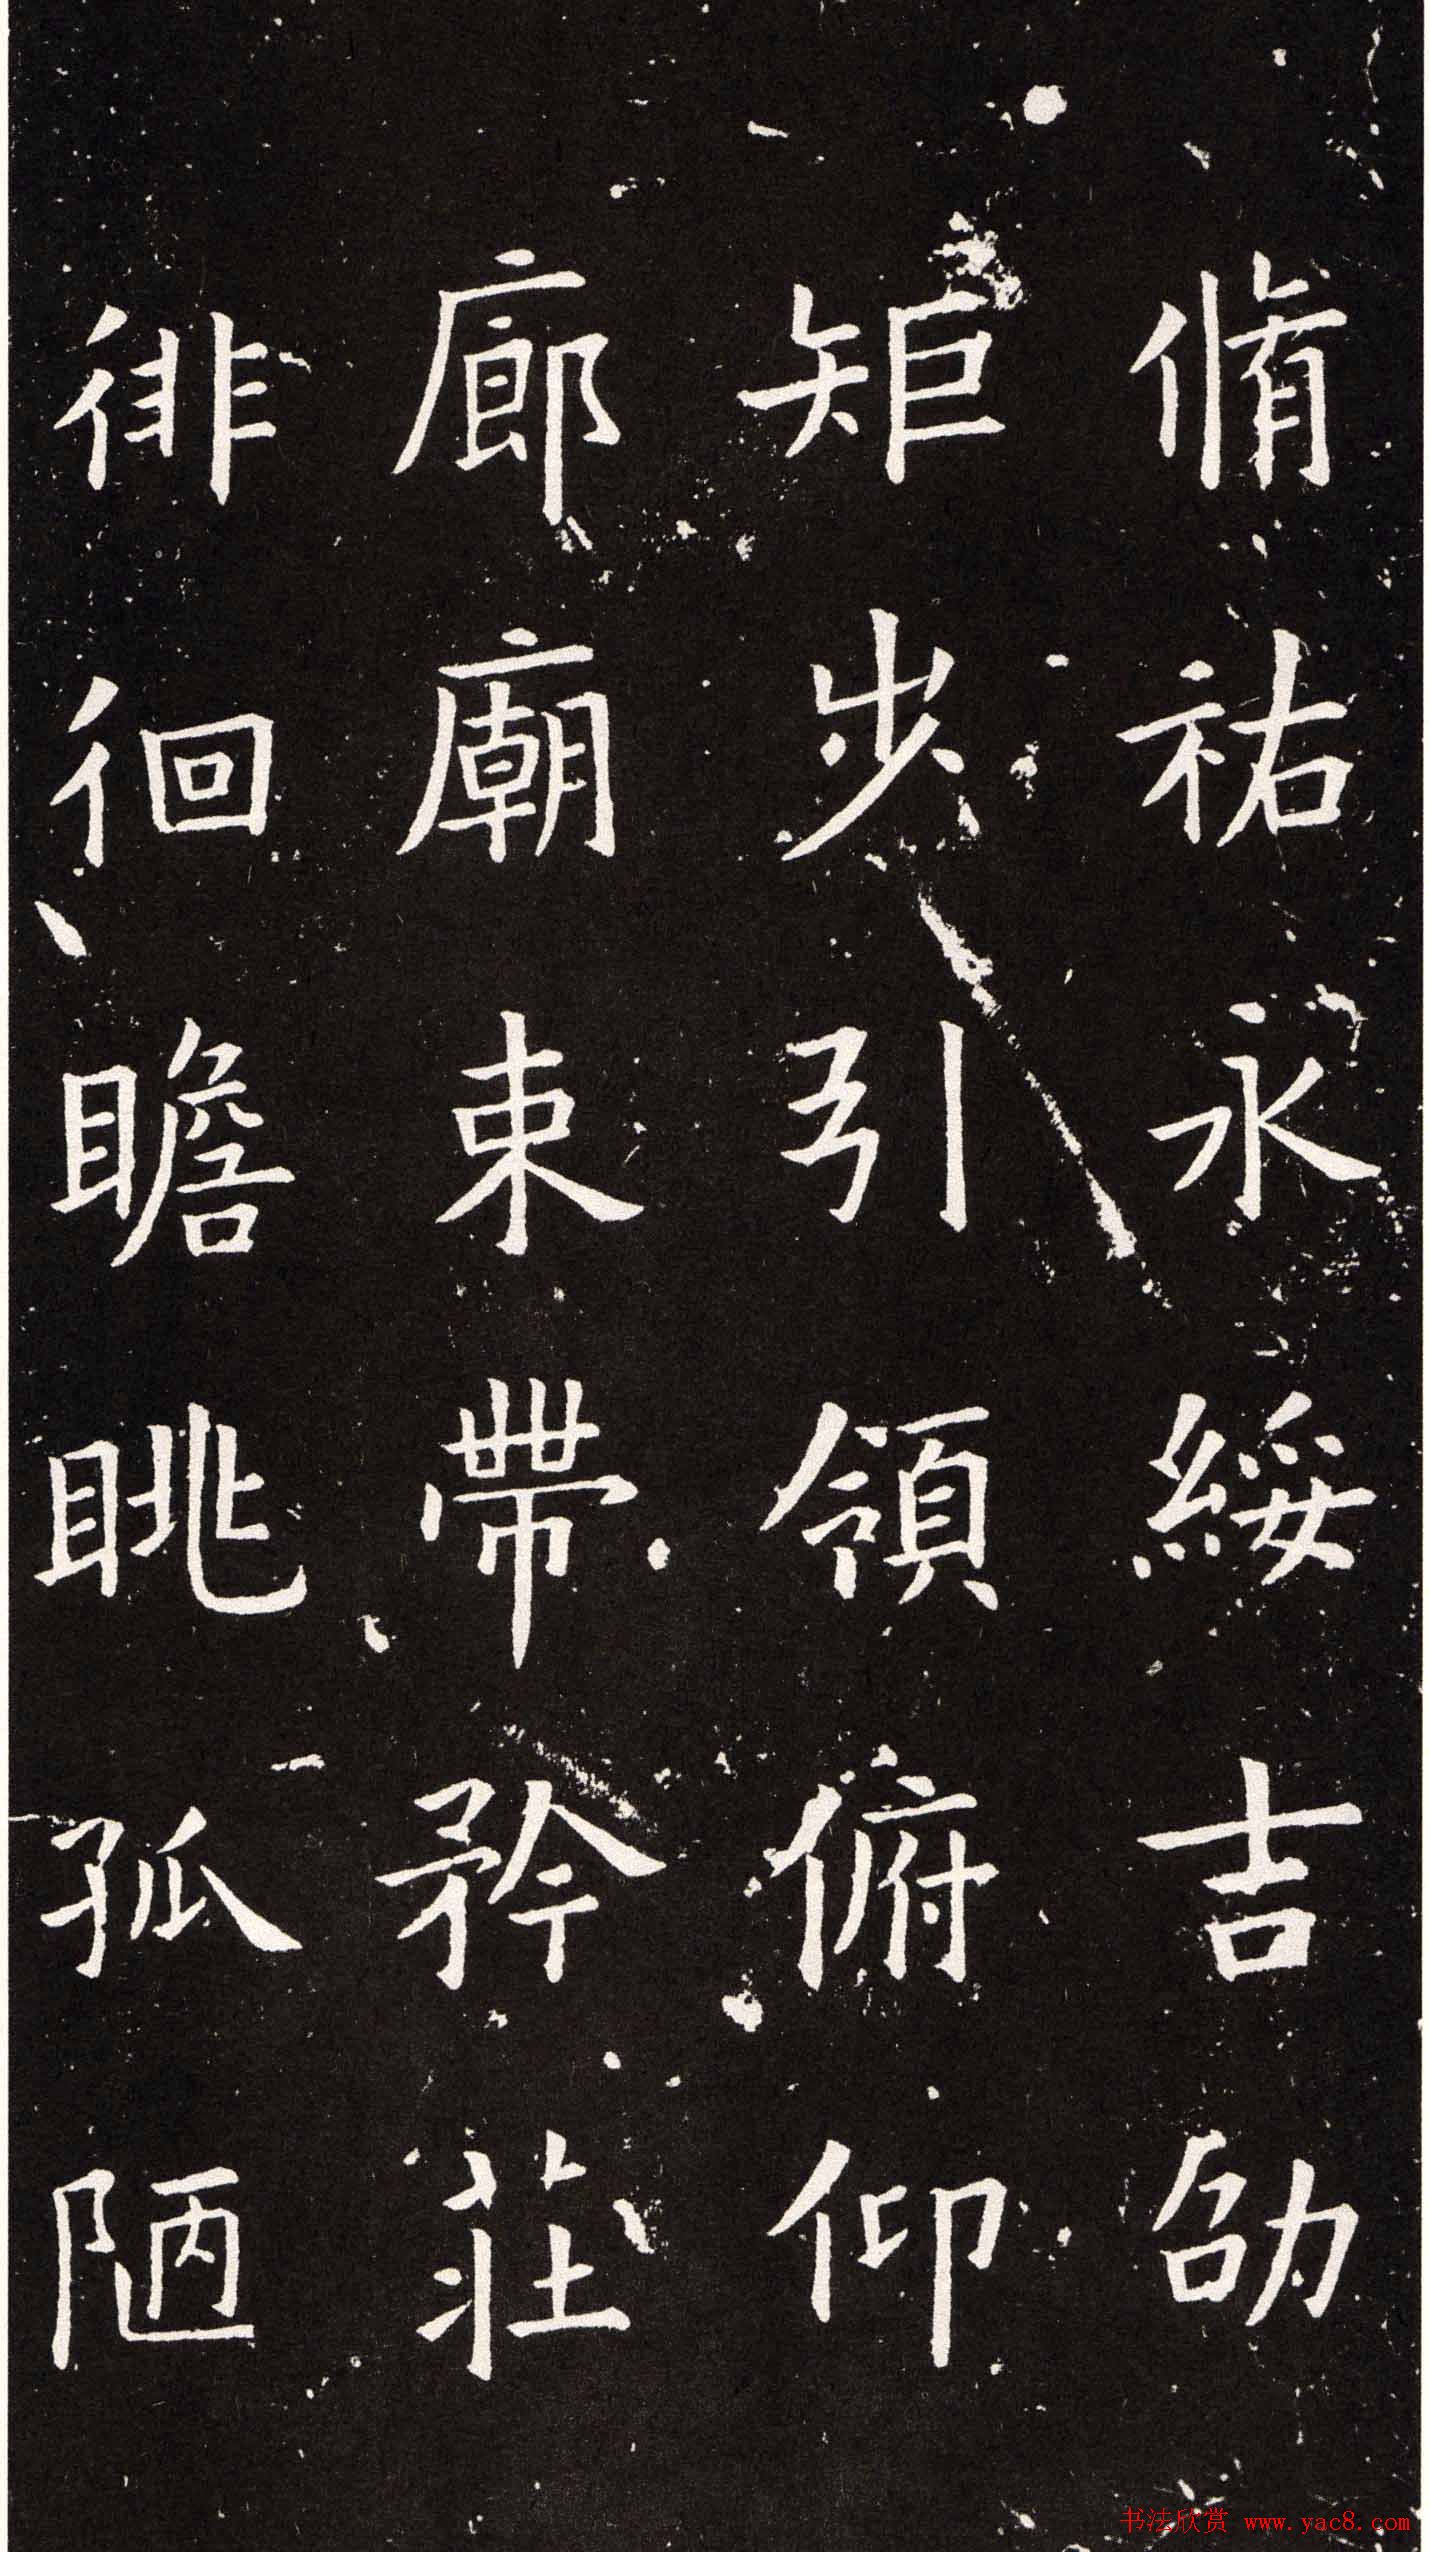 脩祐永綏吉劭
矩步引領俯仰
廊廟束帶矜莊
徘徊瞻眺孤陋
书法欣赏 www.yac8.com